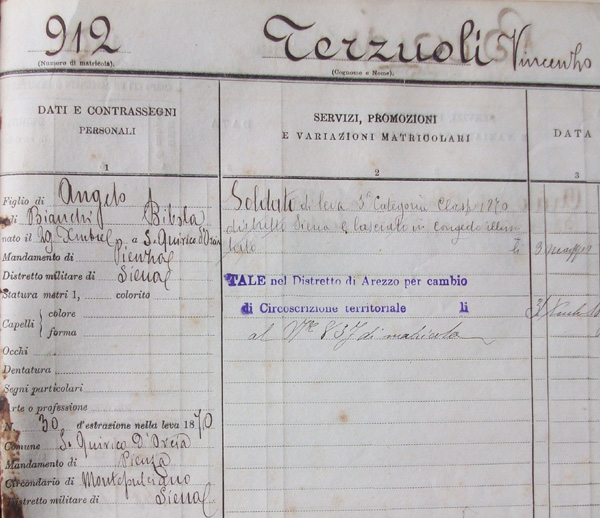 912
Terzuoli Vincenzo
(Numero di matricola).
(Cognome e Nome).
DATI E CONTRASSEGNI
PERSONALI
SERVIZI, PROMOZIONI
E VARIAZIONI MATRICOLARI
DATA
1
2
3
Figlio di Angelo
e di Bianchi
nato il 29 a S. Quirico d'Orcia
Mandamento di Pienza
Distretto militare di Siena
Statura metri 1, colorito
Capelli { colore
forma
Occhi
Dentatura
Segni particolari
Arte o professione
N. 30 d'estrazione nella leva 1870
Comune S. Quirico D'Orcia
Mandamento di Pienza
Circondario di Montepulciano
Distretto militare di Siena
Soldato di leva 3ª Categoria Classe 1870
distretto Siena e lasciato in congedo illimi-
tato li 3
TALE nel Distretto di Arezzo per cambio
di Circoscrizione territoriale li 31
al N° 837 di matricola